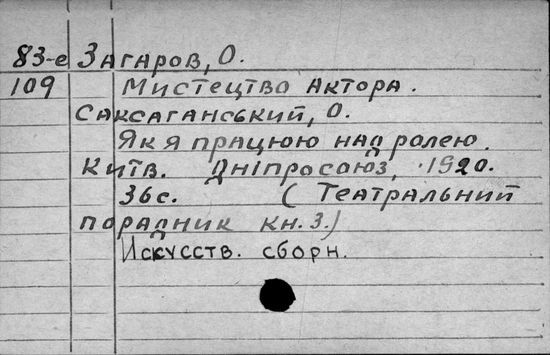 83-е Загаров, О.
109 Мистецтво актора.
Саксаганський, О.
Як я працюю над ролею.
Київ. Дніпросоюз, 1920.
36 с. (Театральний
порадник кн. 3.)
Искусств. сборн.